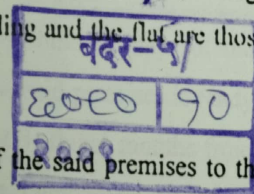 ling and the flat are thos
बदर-५/
१०
f the said premises to th